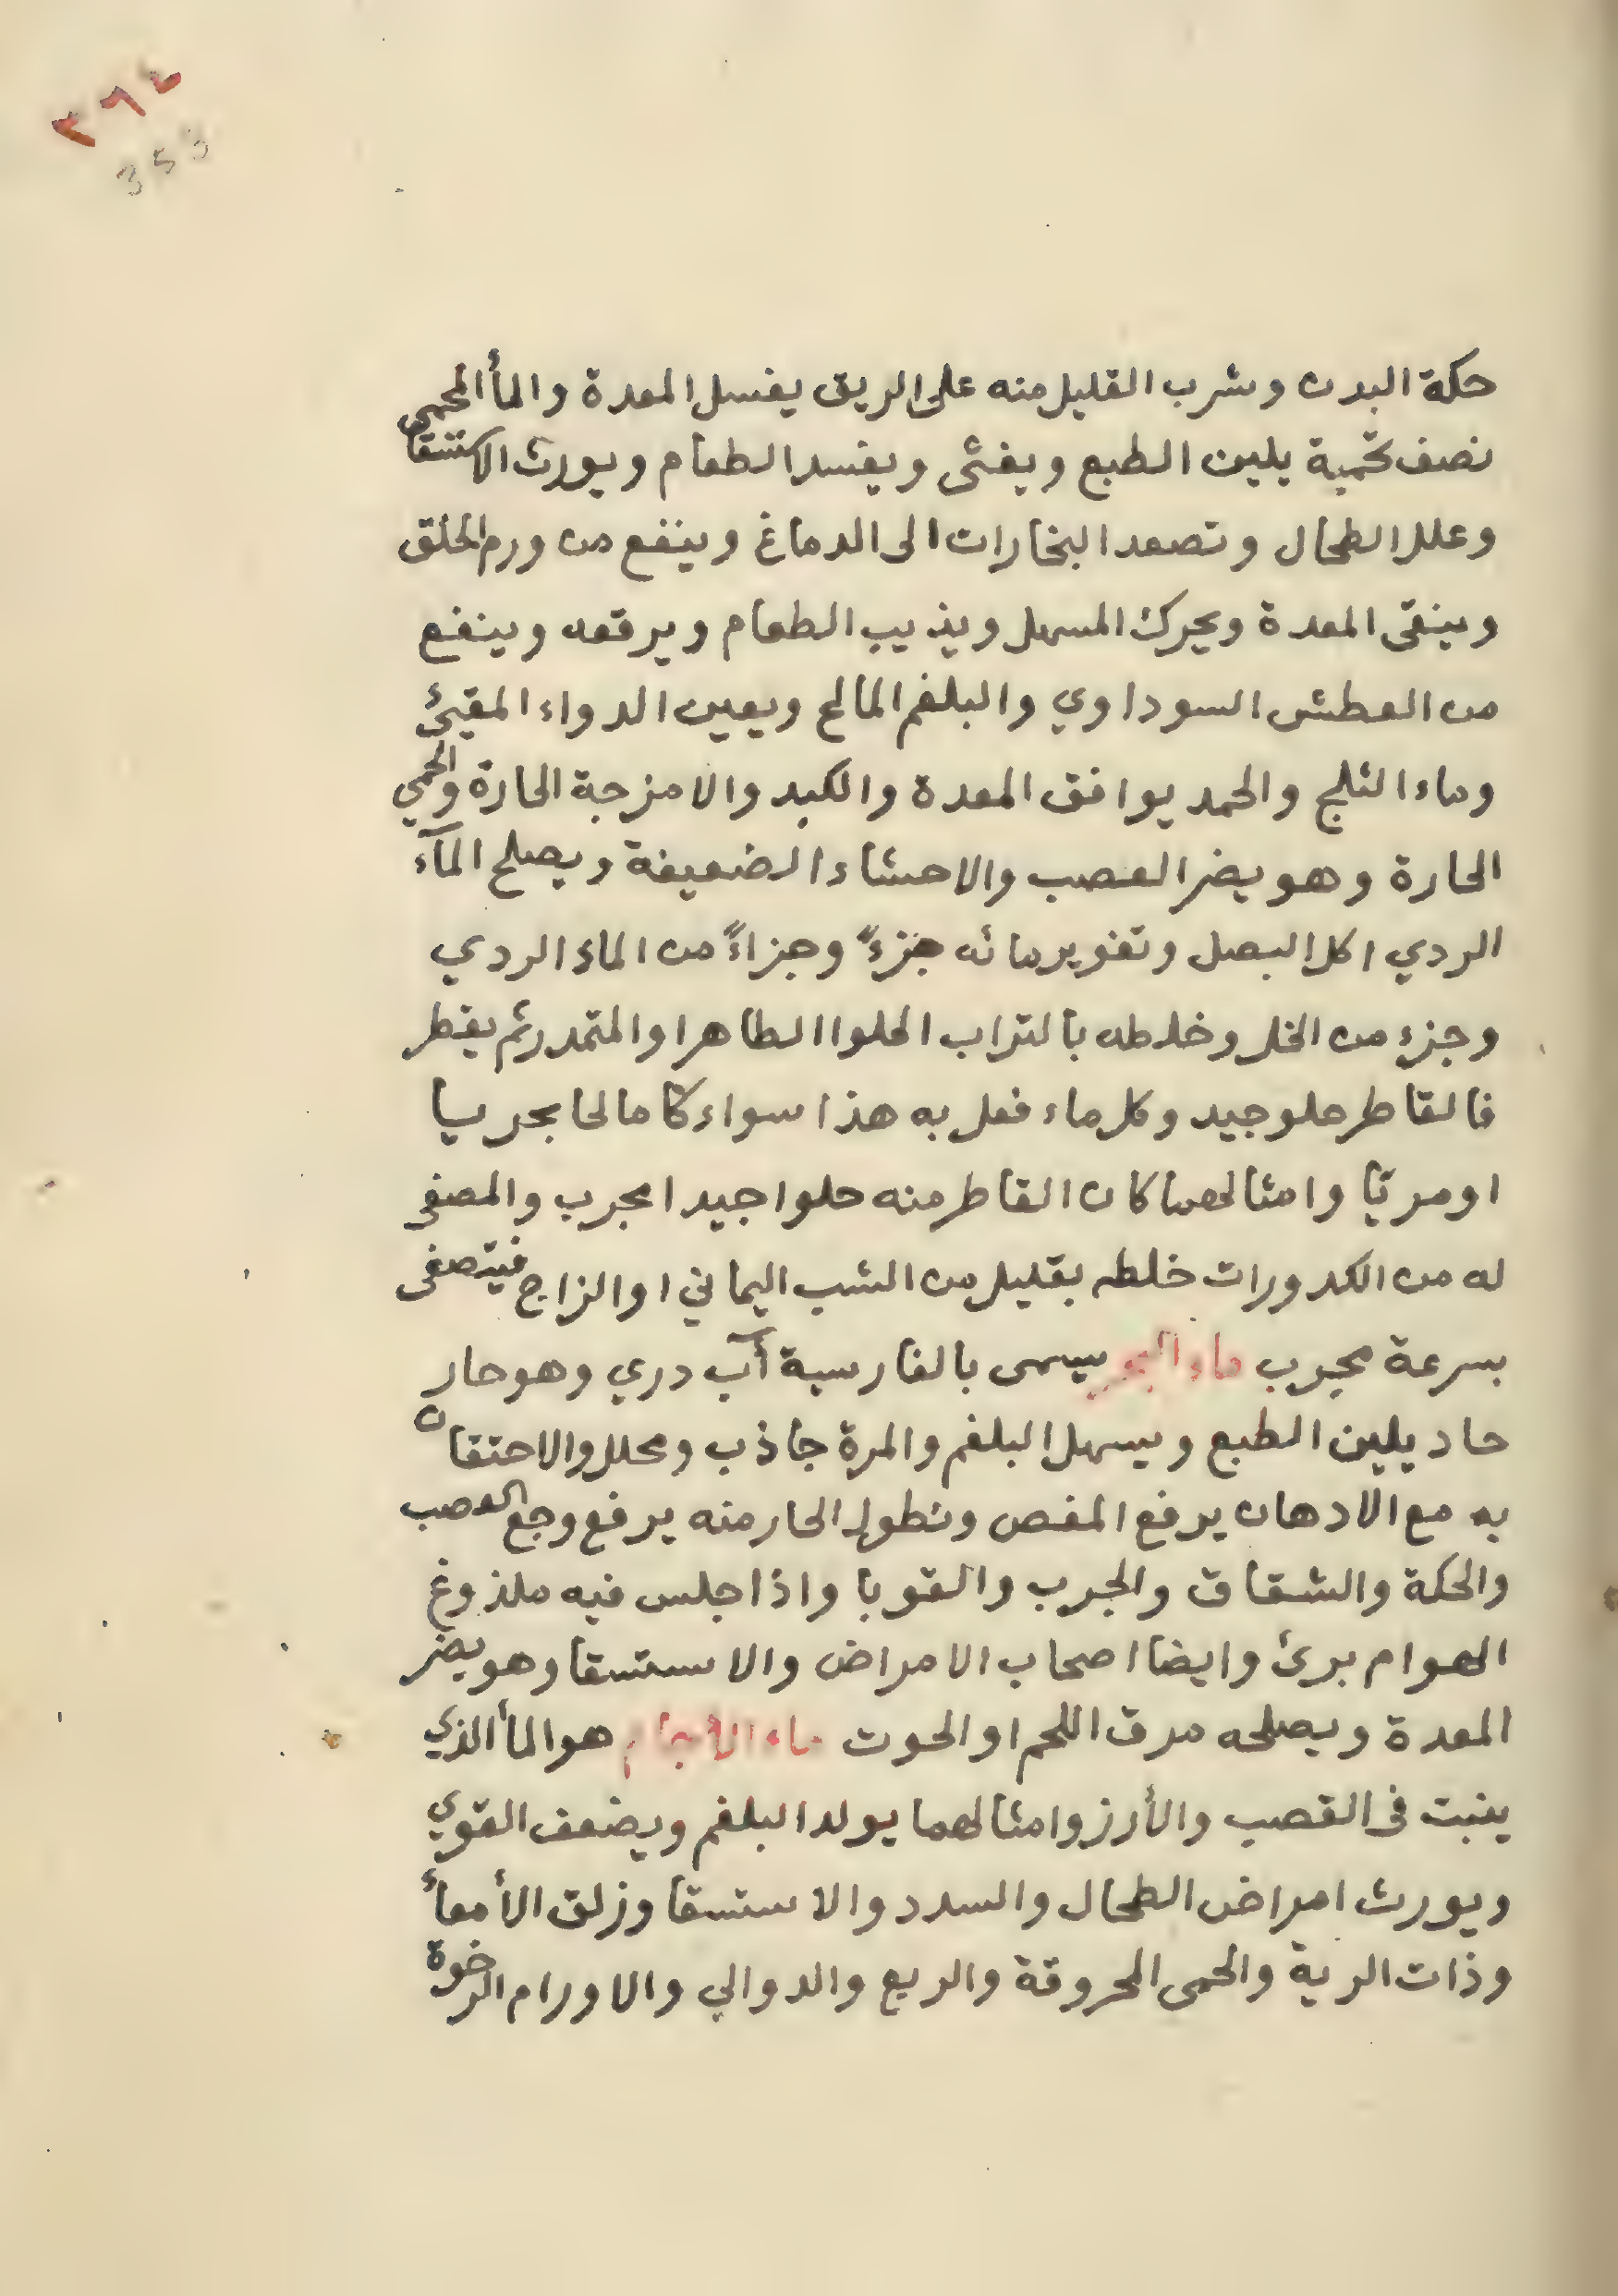 ٣٩٤
353
حكة البدن وشرب القليل منه على الريق يغسل المعدة والمأ المحمى
نصف تحمية يلين الطبع ويغثى ويفسد الطعام ويورث الاستسقا
وعلل الطحال وتصعد البخارات الى الدماغ وينفع من ورم الحلق
وينقى المعدة ويحرك المسهل ويذيب الطعام ويرقعه وينفع
من العطش السوداوي والبلغم المالح ويعين الدواء المقيئ
وماء الثلج والجمد يوافق المعدة والكبد والامزجة الحارة والحمي
الحارة وهو يضر العصب والاحشاء الضعيفة ويصلح المآء
الردي اكل البصل وتغوير مائه جزءً وجزاءً من الماء الردي
وجزء من الخل وخلطه بالتراب الحلوا الطاهر او المتمدر ثم يقطر
فالقاطر حلو جيد وكل ماء فعل به هذا سواء كا مالحا بحريا
او مرّيا وامثالهما كان القاطر منه حلوا جيدا مجرب والمصفى
له من الكدورات خلطه بقليل من الشب اليماني او الزاج فيتصفى
بسرعة مجرب ماء البحر يسمى بالفارسية آب دري وهو حار
حاد يلين الطبع ويسهل البلغم والمرة جاذب ومحلل والاحتقان
به مع الادهان يرفع المغص ونطول الحار منه يرفع وجع العصب
والحكة والشقاق والجرب والقوبا واذا جلس فيه ملذوغ
الهوام برئ وايضا اصحاب الامراض والاستسقا وهو يضر
المعدة ويصلحه مرق اللحم او الحوت ماء الأجام هو المأ الذي
ينبت فى القصب والأرز وامثالهما يولد البلغم ويضعف القوي
ويورث امراض الطحال والسدد والاستسقا وزلق الأمعأ
وذات الرية والحمى المحروقة والربع والدوالي والاورام الرخوة